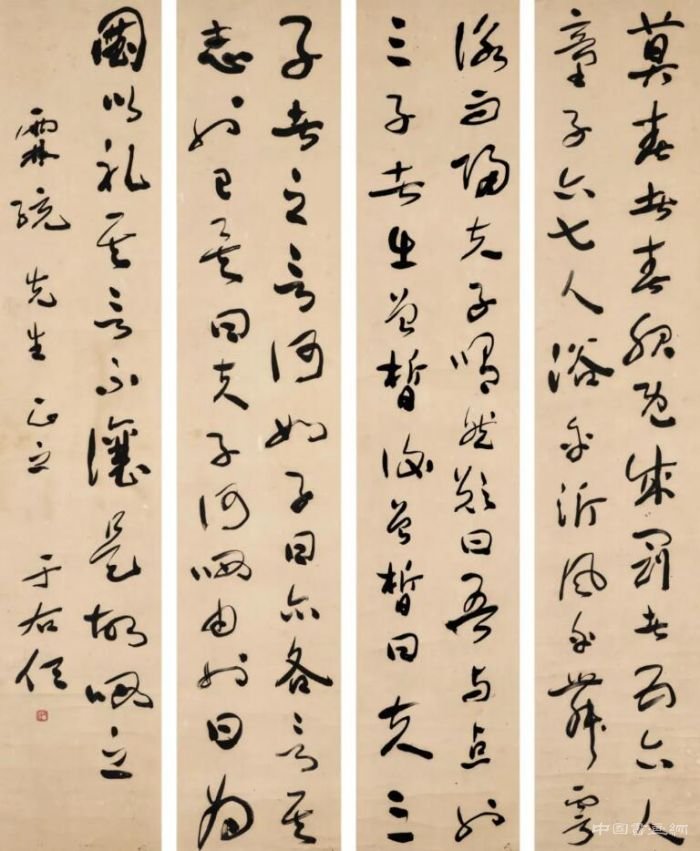 莫春者春服既成冠者五六人
童子六七人浴乎沂風乎舞雩
詠而歸夫子喟然歎曰吾与点也
三子者出曾皙後曾皙曰夫三
子者之言何如子曰亦各言其
志也已矣曰夫子何哂由也曰为
國以礼其言不讓是故哂之
霖統先生正之 于右任